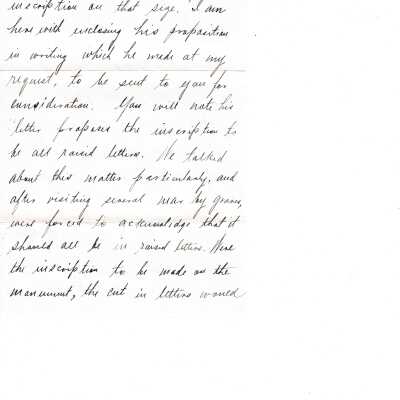 inscription on that size. I am
herewith enclosing his proposition
in writing which he made at my
request, to be sent to you for
consideration. You will note his
letter proposes the inscription to
be all raised letters. We talked
about this matter particularly, and
after visiting several near by graves,
were forced to acknowledge that it
should all be in raised letters. Were
the inscription to be made on the
monument, the cut in letters would